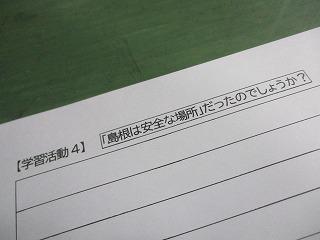 【学習活動4】 「島根は安全な場所」だったのでしょうか？